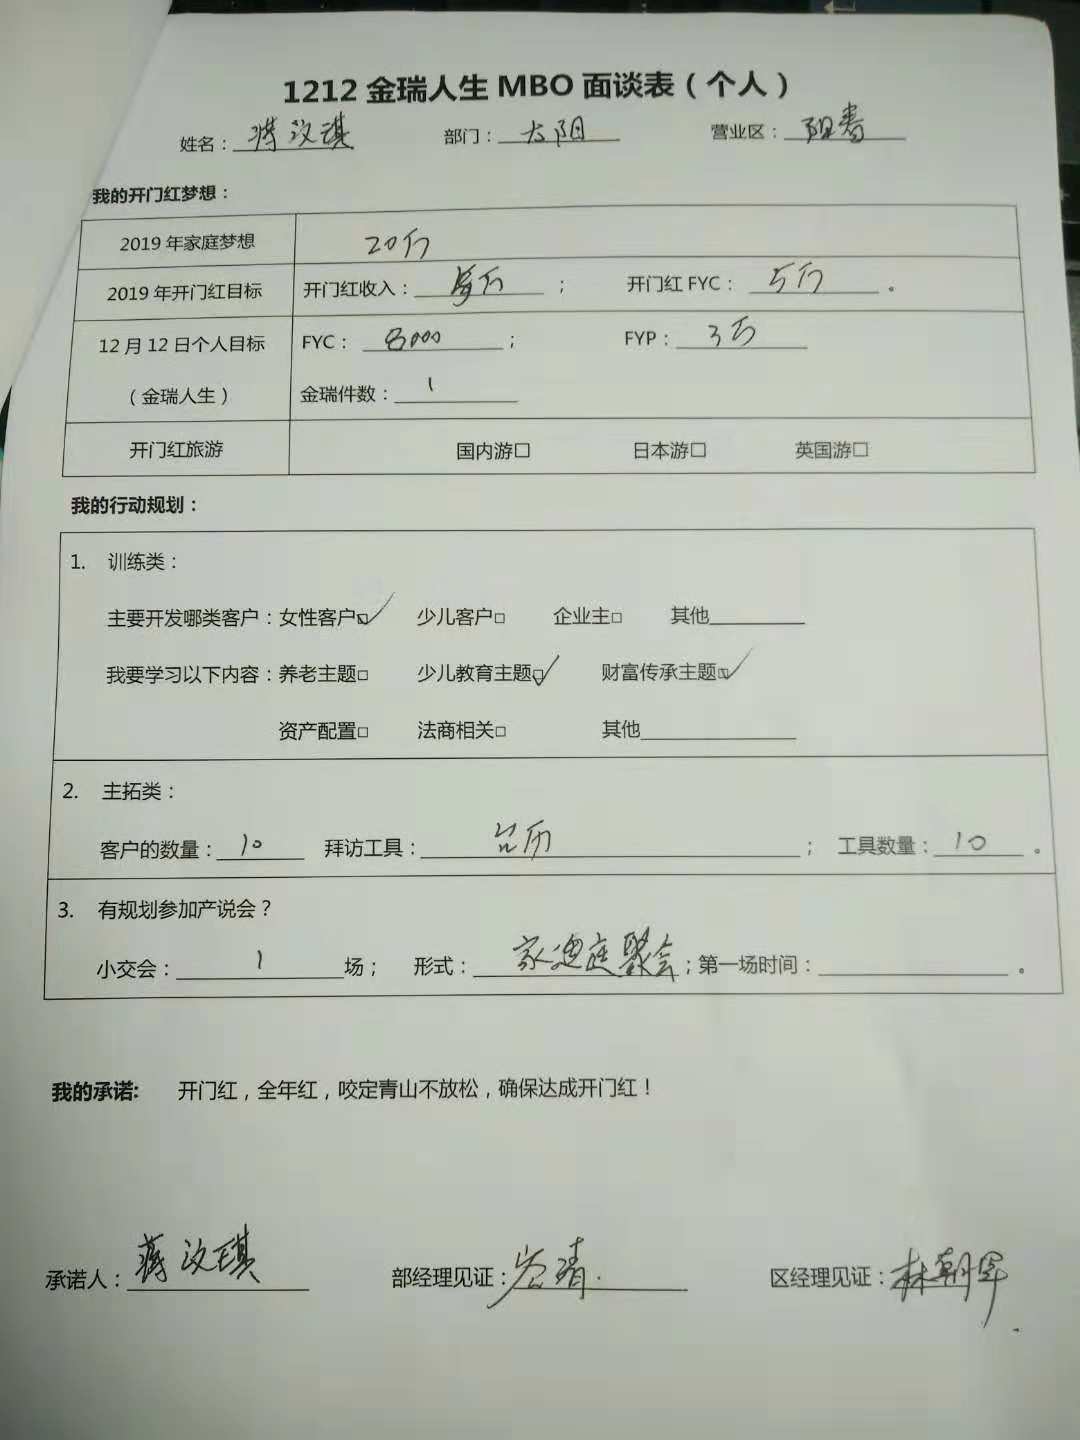 1212金瑞人生MBO面谈表（个人）
姓名：蒋汶琪 部门：太阳 营业区：阳春
我的开门红梦想：
2019年家庭梦想 20万
2019年开门红目标 开门红收入：万； 开门红FYC：5万。
12月12日个人目标 FYC：8000； FYP：3万
（金瑞人生） 金瑞件数：1
开门红旅游 国内游□ 日本游□ 英国游□
我的行动规划：
1. 训练类：
主要开发哪类客户：女性客户☑ 少儿客户□ 企业主□ 其他
我要学习以下内容：养老主题□ 少儿教育主题☑ 财富传承主题☑
资产配置□ 法商相关□ 其他
2. 主拓类：
客户的数量：10 拜访工具：台历； 工具数量：10。
3. 有规划参加产说会？
小交会：1场； 形式：家庭聚会；第一场时间：。
我的承诺: 开门红，全年红，咬定青山不放松，确保达成开门红！
承诺人：蒋汶琪 部经理见证： 区经理见证：林朝